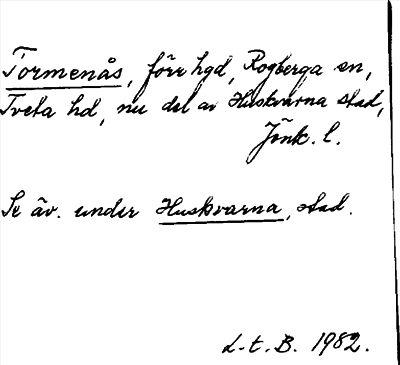 Tormenås, förr hgd, Rogberga sn,
Tveta hd, nu del av Huskvarna stad,
Jönk. l.
Se äv. under Huskvarna, stad.
L.t.B. 1982.